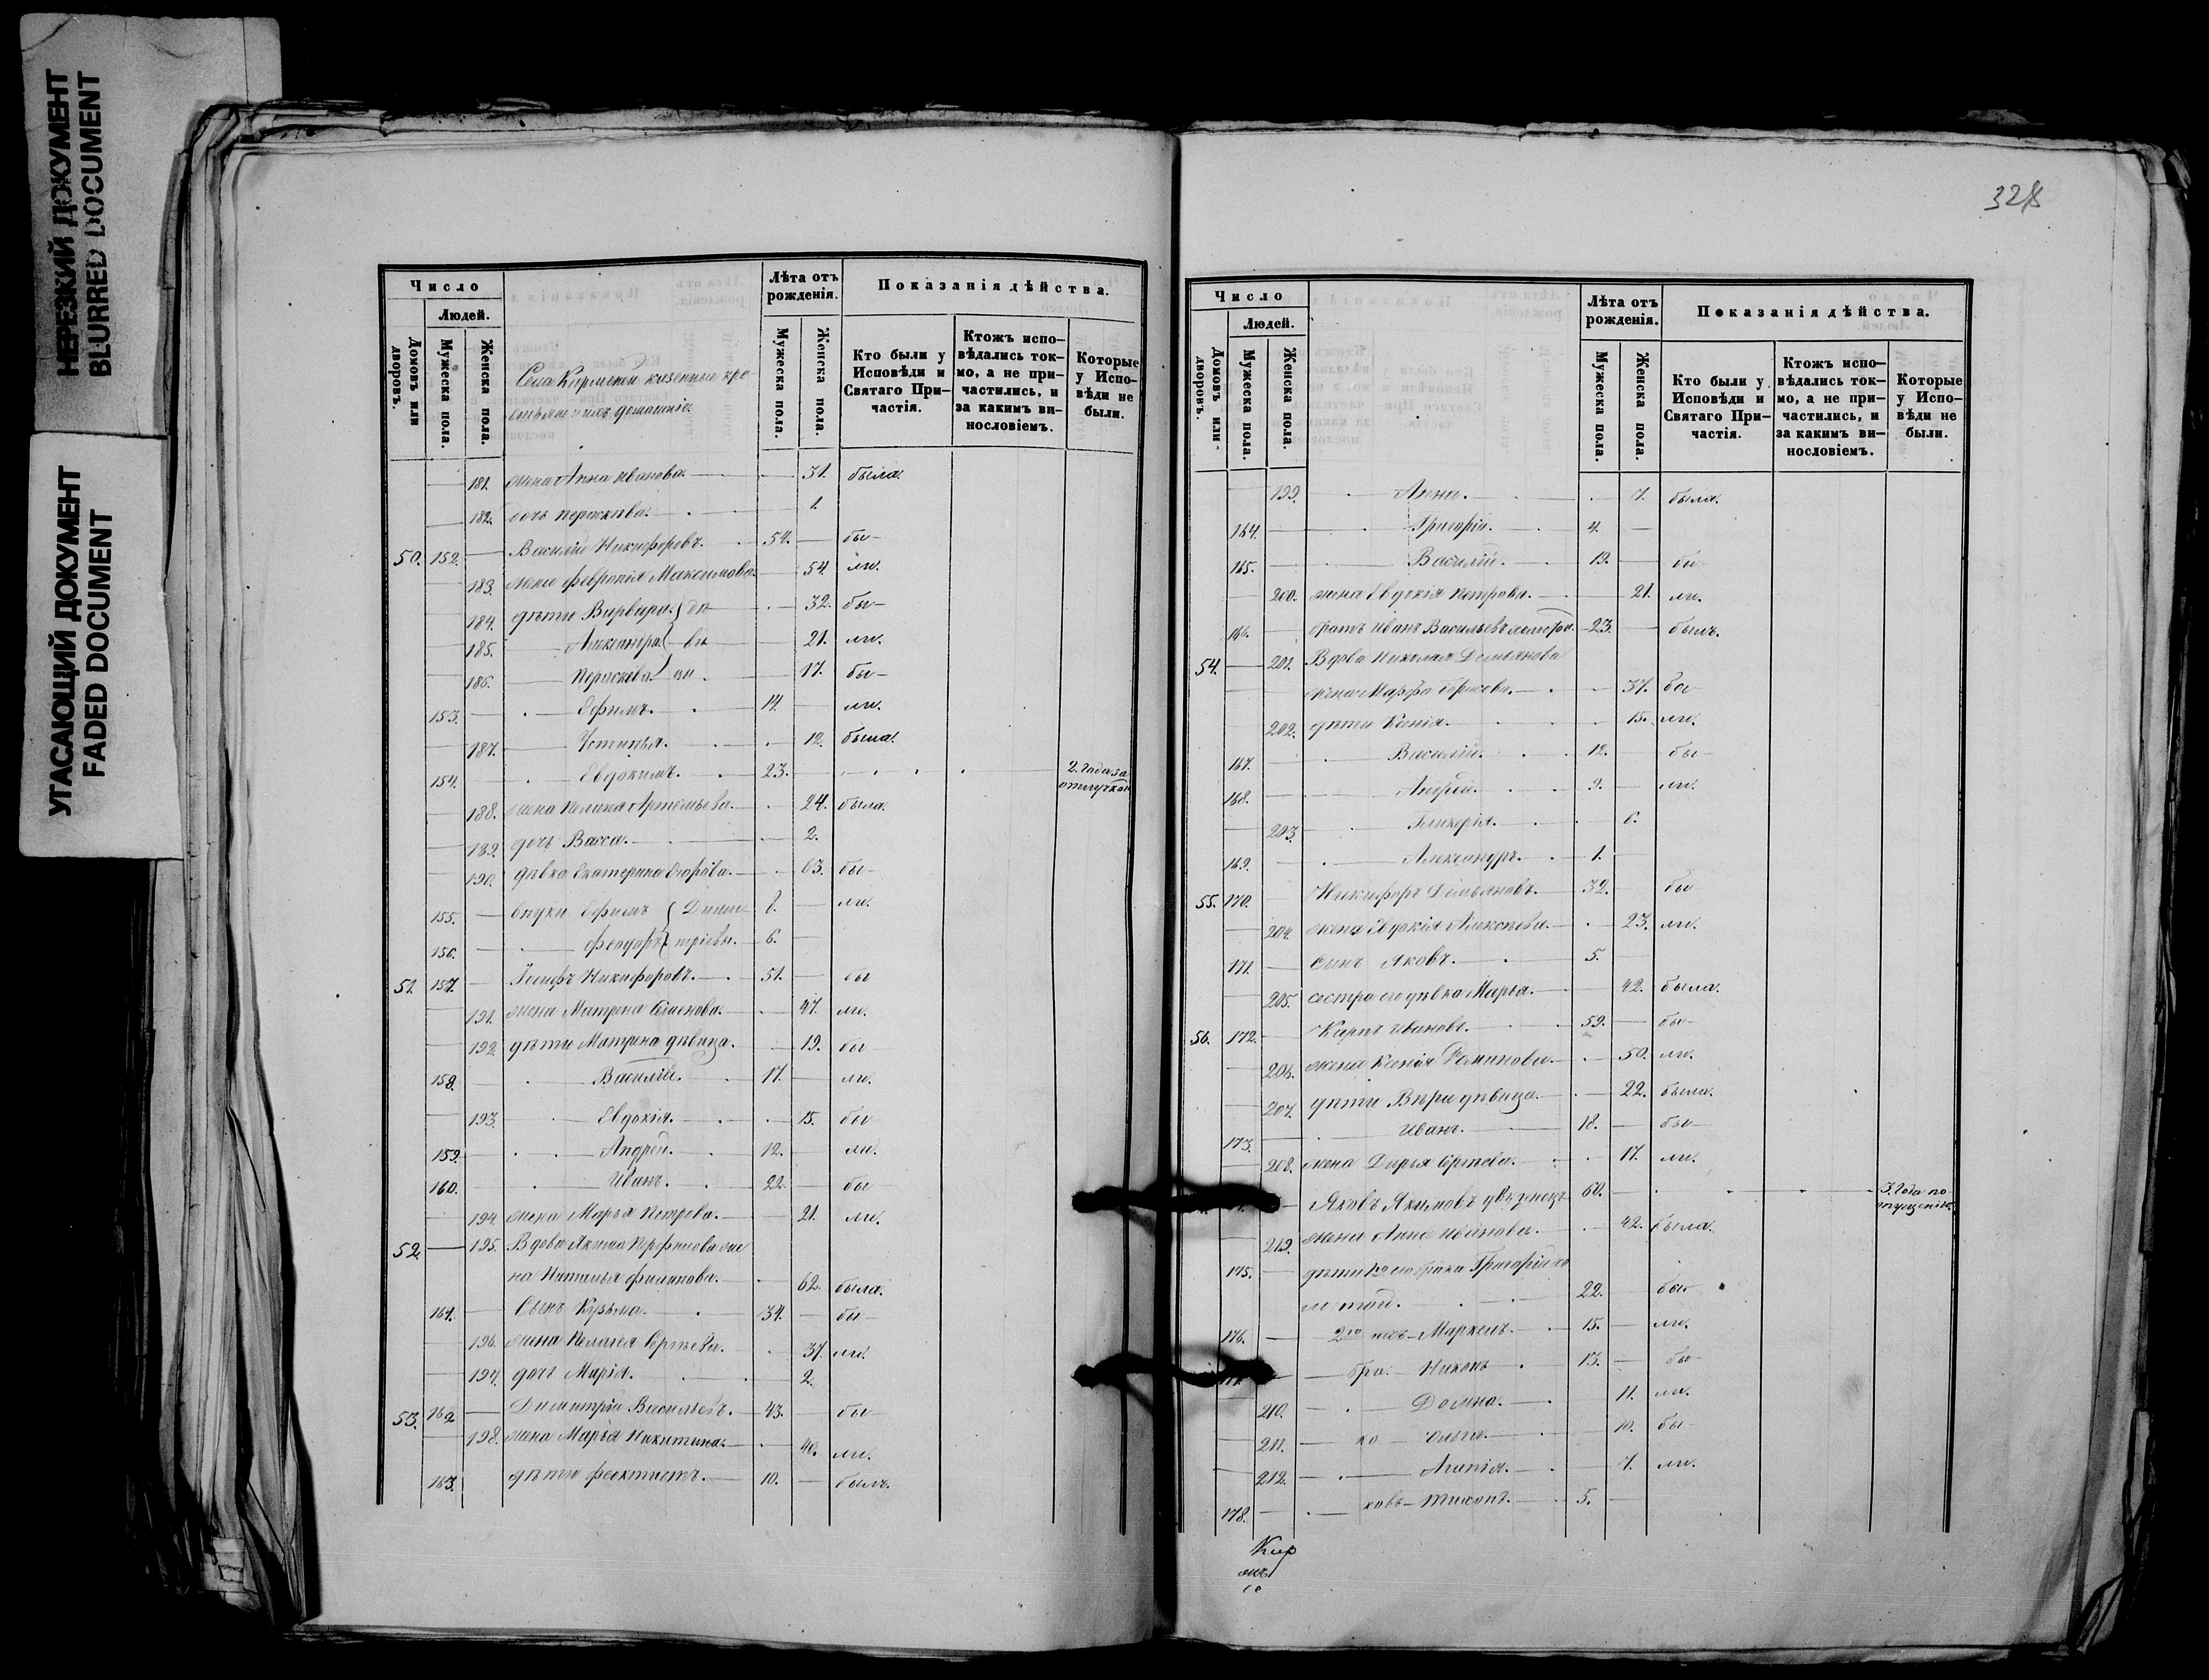 НЕРЕЗКИЙ ДОКУМЕНТ
BLURRED DOCUMENT
УГАСАЮЩИЙ ДОКУМЕНТ
FADED DOCUMENT
Число
Людей.
Домовъ или дворовъ.
Мужеска пола.
Женска пола.
Села казенные кре-
стьяне и ихъ домашніе.
Лѣта отъ рожденія.
Мужеска пола.
Женска пола.
Показанія дѣйства.
Кто были у Исповѣди и Святаго При-частія.
Ктожъ испо-вѣдались ток-мо, а не при-частились, и за какимъ ви-нословіемъ.
Которые у Испо-вѣди не были.
181. жена Анна Иванова. 31. была.
182. дочь Параскева. 1.
50. 152. Василій Никифоровъ. 54. бы-
183. жена Февронія Максимова. 54. ли.
184. дѣти Варвара. дѣ- 32. бы-
185. Александра. ви- 21. ли.
186. Параскева. цы 17. бы-
153. Ефимъ. 14. ли.
187. Устинья. 12. была.
154. Евдокимъ. 23. 2. года за
отлучкой
188. жена Артемьева. 24. была.
189. дочь Васса. 2.
190. дѣвка Екатерина Егорова. 63. бы-
155. внуки Ефимъ Дими- 8. ли.
156. Феодоръ тріевы. 6.
51. 157. Іосифъ Никифоровъ. 51. бы
191. жена Матрена Семенова. 47. ли.
192. дѣти Матрена дѣвица. 19. бы
158. Василій. 17. ли.
193. Евдокія. 15. бы
159. Андрей. 12. ли.
160. Иванъ. 22. бы
194. жена Марья Петрова. 21. ли.
52. 195. Вдова Якима Перфилова же-
на Наталья Филипова. 62. была.
161. Сынъ Кузьма. 34. бы-
196. жена Пелагея Сергѣева. 37. ли.
197. дочь Марія. 2.
53. 162. Димитрій Васильевъ. 43. бы
198. жена Марья Никитина. 40. ли.
163. дѣти Феоктистъ. 10. былъ.
328
Число
Людей.
Домовъ или дворовъ.
Мужеска пола.
Женска пола.
Лѣта отъ рожденія.
Мужеска пола.
Женска пола.
Показанія дѣйства.
Кто были у Исповѣди и Святаго При-частія.
Ктожъ испо-вѣдались ток-мо, а не при-частились, и за какимъ ви-нословіемъ.
Которые у Испо-вѣди не были.
199. Анна. 7. была.
164. Григорій. 4.
165. Василій. 19. бы-
200. жена Евдокія Петрова. 21. ли.
166. братъ Иванъ Васильевъ 23. былъ.
54. 201. Вдова Николая Демьянова
жена Марфа Борисова. 37. бы-
202. дѣти Ксенія. 15. ли.
167. Василій. 12. бы-
168. Андрей. 9. ли.
203. Гликерія. 6.
169. Александръ. 1.
55. 170. Никифоръ Демьяновъ. 32. бы
204. жена Евдокія Алексѣева. 23. ли.
171. Сынъ Яковъ. 5.
205. сестра его дѣвка Марья. 42. была.
56. 172. Карпъ Ивановъ. 59. бы-
206. жена Ксенія 50. ли.
207. дѣти Вѣра дѣвица. 22. была.
173. Иванъ. 18. бы-
208. жена Дарья Сергѣева. 17. ли.
Яковъ Якимовъ 60. 3. года по
опущенію
219. жена Анна Иванова. 42. была.
175. дѣти 1го его брака Григорій хо-
лостой. 22. бы-
176. 2го ихъ Маркелъ. 15. ли.
бра- Никонъ 13. бы-
210. Домна. 11. ли.
211. ко- Ольга. 10. бы
212. Агапія. 7. ли.
178. ковъ Тихонъ. 5.